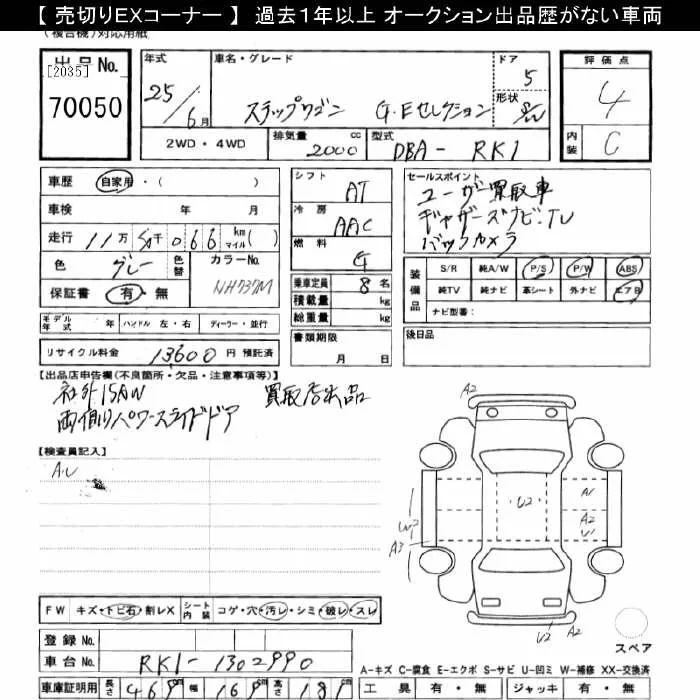 【 売切りEXコーナー 】 過去1年以上 オークション出品歴がない車両
(複合機)対応用紙
出品No. [2035]
70050
年式 25 / 6月
車名・グレード ステップワゴン G・Eセレクション
ドア 5
形状 S/W
評価点 4
内装 C
2WD・4WD
排気量 2000 cc
型式 DBA- RK1
車歴 自家用・( )
車検 年 月
走行 11万 50千 066 km マイル( )
色 グレー 色替
カラーNo. NH737M
保証書 有・無
モデル年式 年 ハンドル 左・右 ディーラー・並行
リサイクル料金 13600 円 預託済
シフト AT
冷房 AAC
燃料 G
乗車定員 8 名
積載量 kg
総重量 kg
書類期限 月 日
セールスポイント
ユーザー買取車
ギャザーズナビ・TV
バックカメラ
装備品 S/R 純A/W P/S P/W ABS
純TV 純ナビ 革シート 外ナビ エアB
ナビ型番:
後日品
【出品店申告欄(不良箇所・欠品・注意事項等)】
社外15AW 買取店出品
両側パワースライドドア
【検査員記入】
A・U
A2
U2
A1
A2
U1
W2
A3
U2 A2
スペア
FW キズ・トビ石・割レX シート内装 コゲ・穴・汚レ・シミ・破レ・スレ
登録No.
車台No. RK1-1302990
A-キズ C-腐食 E-エクボ S-サビ U-凹ミ W-補修 XX-交換済
車庫証明用 長さ 469 幅 169 高さ 181
工具 有・無 ジャッキ 有・無